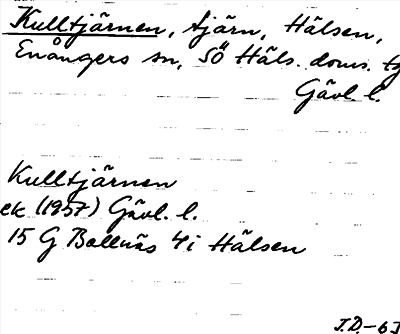 Kulltjärnen, tjärn, Hälsen,
Enångers sn, SÖ Häls. doms. tg
Gävl. l.
Kulltjärnen
ek (1957) Gävl. l.
15 G Bollnäs 4i Hälsen
J.D.-63